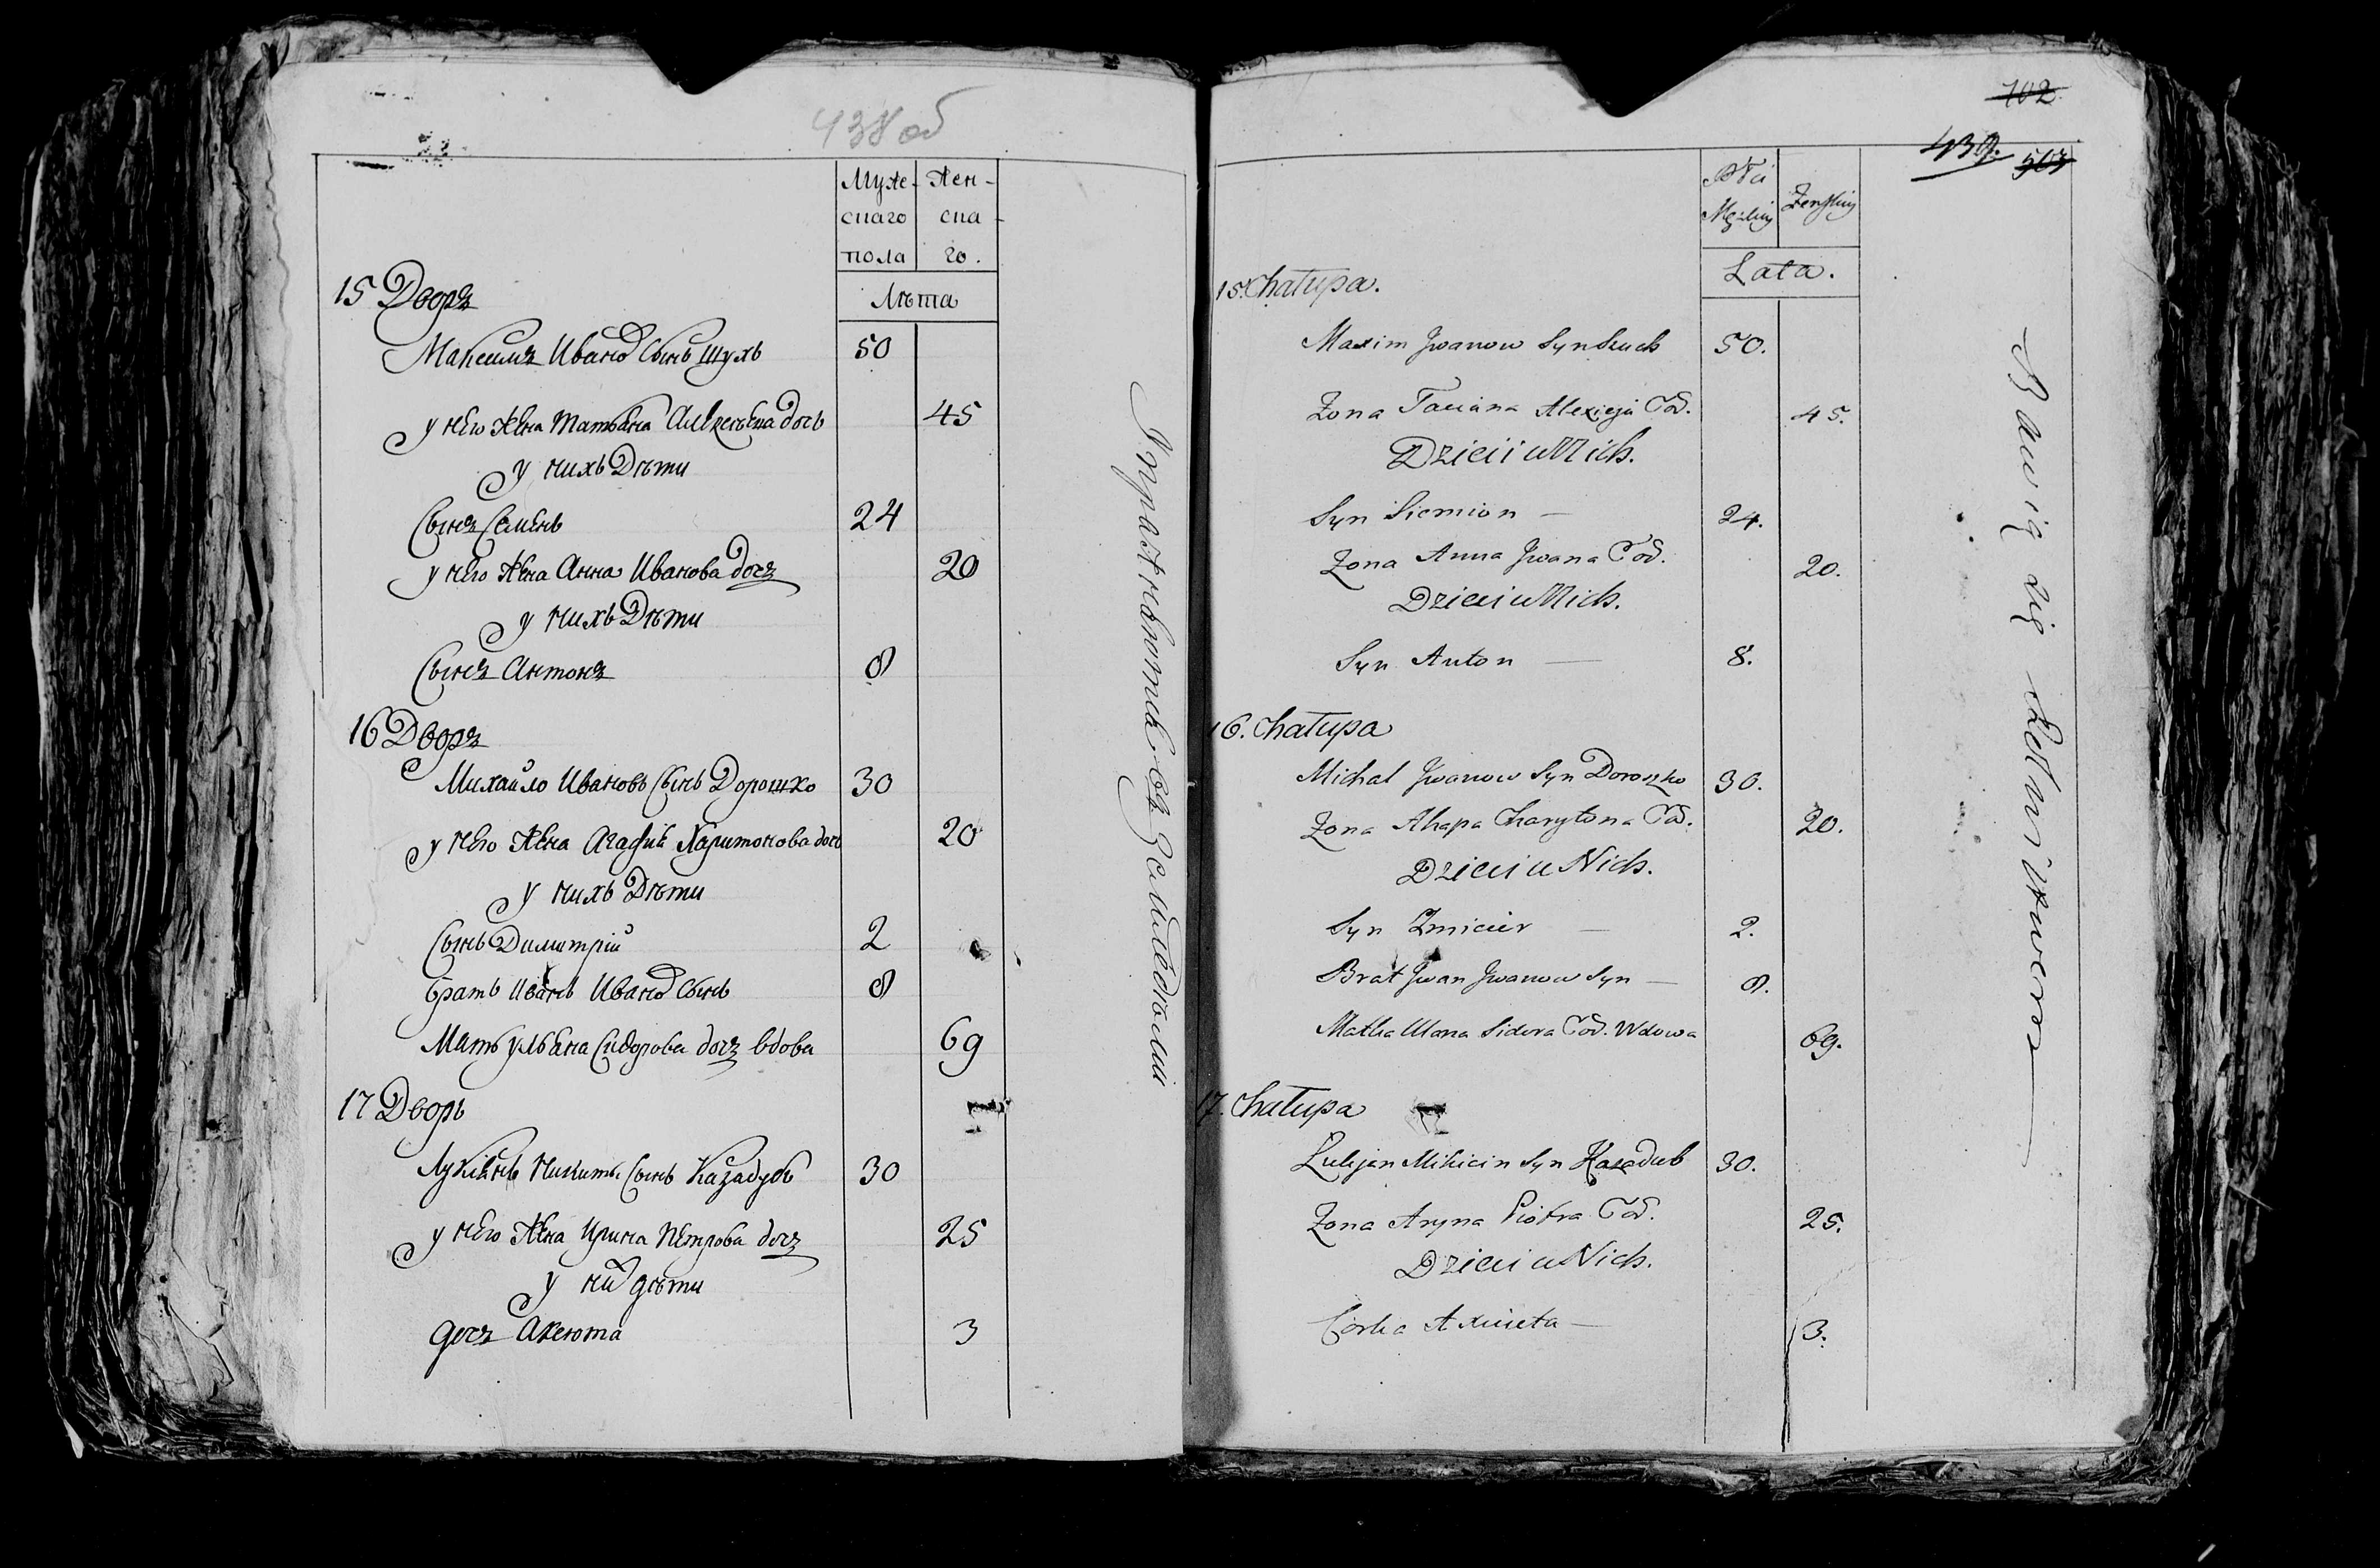 438 об
Муже- Жен-
скаго ска-
пола го.
Лѣта
15 Дворъ
Максимъ Иванов Сынъ шухъ 50
у него жена татьяна Алексеева дочь 45
у нихъ Дѣти
Сынъ Семенъ 24
у него жена Анна Иванова дочь 20
у нихъ Дѣти
Сынъ Антонъ 8
16 Дворъ
Михайло Ивановъ Сынъ Дорошко 30
у него жена Агафия Харитонова дочь 20
у нихъ Дѣти
Сынъ Димитрій 2
братъ Иванъ Иванов Сынъ 8
Мать ульяна Сидорова дочь вдова 69
17 Дворъ
Лукянъ Никитъ Сынъ Казадубъ 30
у него жена Ирина петрова дочь 25
у них дѣти
дочь Аксюта 3
102
439. 503
Płci
Męzkiey Zenskiey
Lata.
15. Chałupa.
Maxim Jwanow Syn Szuch 50.
Zona Taciana Alexieja Cod. 45.
Dzieci u Nich.
Syn Siemion — 24.
Zona Anna Jwana Cod. 20.
Dzieci u Nich.
Syn Anton — 8.
16. Chałupa
Michał Jwanow Syn Doroszko 30.
Zona Ahapa Charytona Cod. 20.
Dzieci u Nich.
Syn Zmicier — 2.
Brat Jwan Jwanow Syn — 8.
Matka Ulana Sidora Cod. Wdowa 69.
17. Chałupa
Łukjan Mikicin Syn Kazadub 30.
Zona Aryna Piotra Cod. 25.
Dzieci u Nich.
Corka Axiuta — 3.